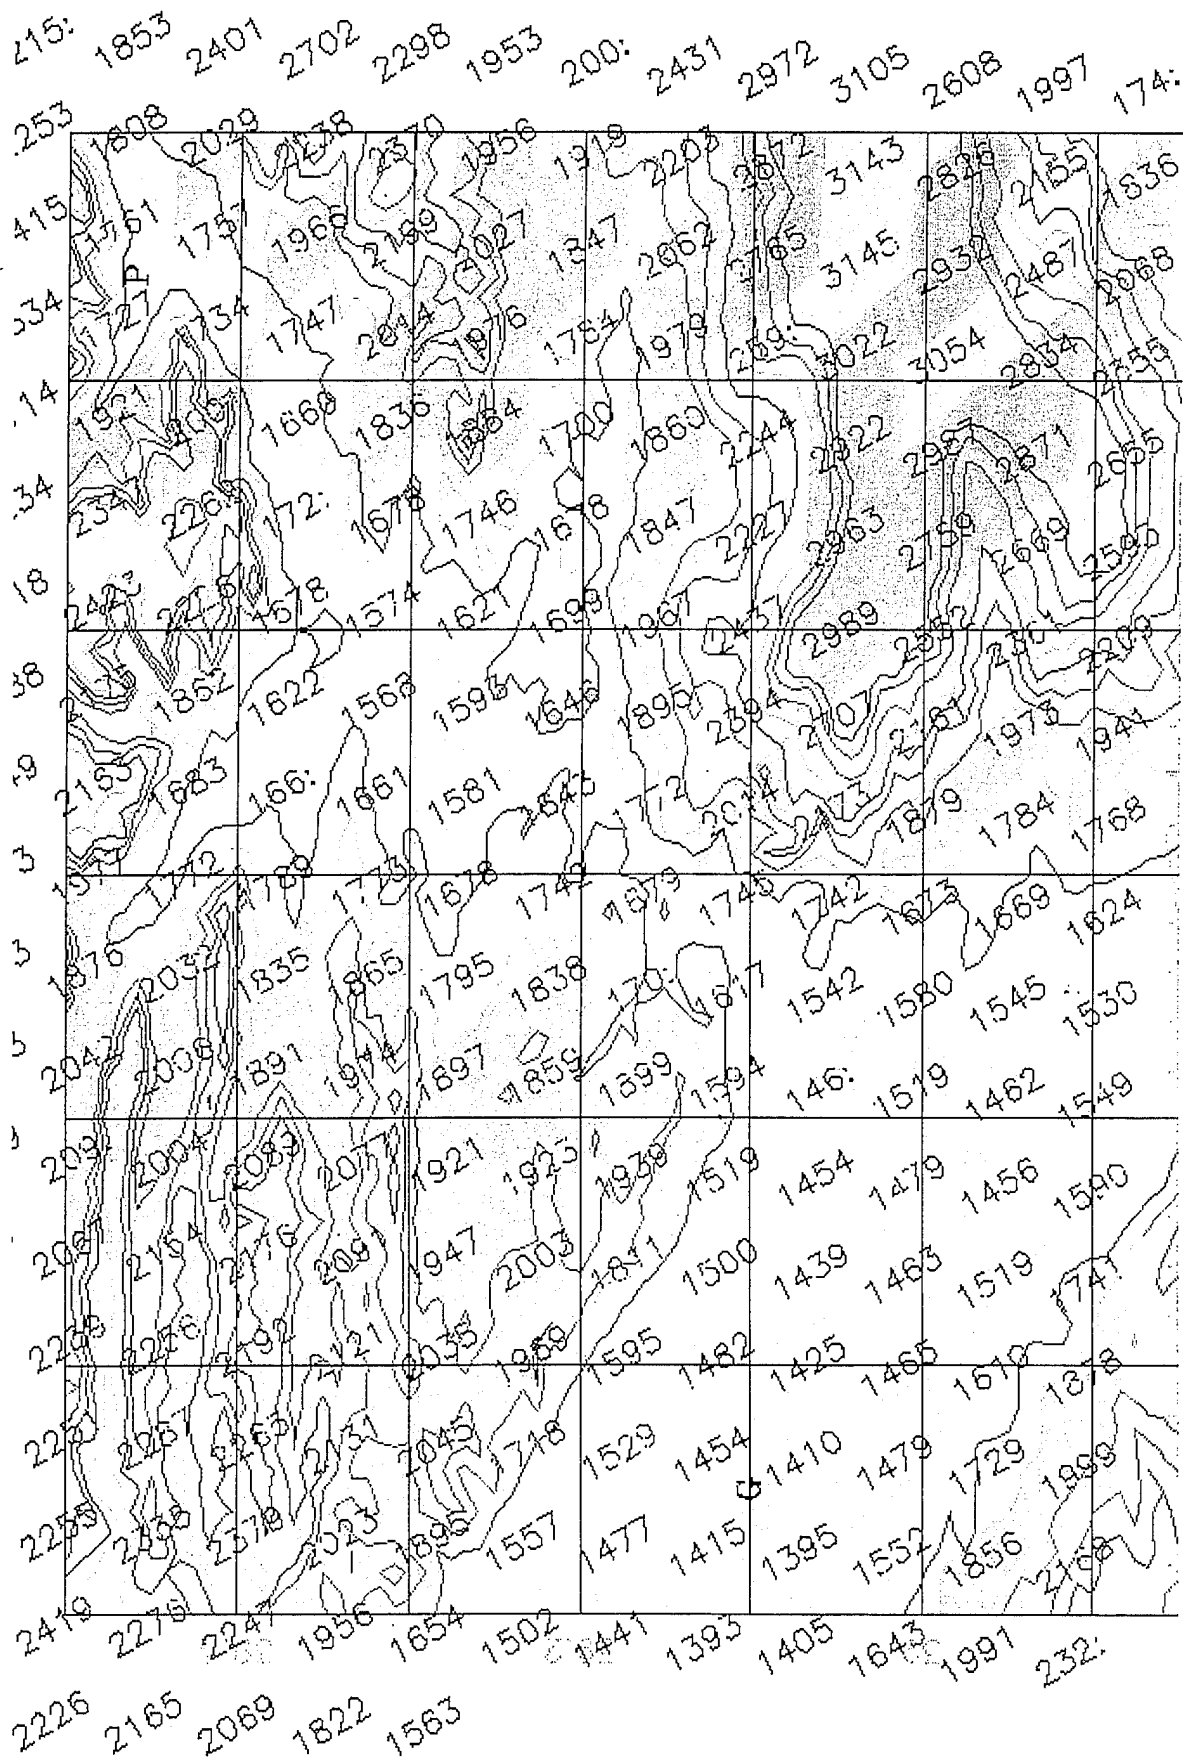 1853 2401 2702 2298 1953 200: 2431 2972 3105 2608 1997 174:
.253 1808 2029 1956 1919 2203 3143 2826 2155 1836
415 1761 175: 1966 2199 2027 1847 2062 2765 3145 2932 2487 2068
534 727 P 1734 1747 2014 1976 1784 1979 259: 3022 3054 2834 2355
14 1921 1660 1836 1700 1860 2244 2871 2655
.34 226: 172: 1678 1746 1847 2227 2963 2759 2669
18 1678 1574 1621 1699 1967 2437 2989
38 1862 1622 1568 1593 1646 1895 2394 2707 2161 1973 1941
2163 1683 166: 1661 1581 1643 1772 2014 2173 1879 1784 1768
3 1977 1772 1789 1773 1678 1742 1679 1745 1742 1673 1669 1624
3 1876 203: 1835 1865 1795 1838 170: 1617 1542 1580 1545 1530
2042 2006 1891 1974 1897 1859 1699 1594 146: 1519 1462 1549
209: 2004 2083 2077 1921 1923 1939 1519 1454 1479 1456 1590
2154 2091 1947 2003 1811 1500 1439 1463 1519 1741
2192 2121 2035 1969 1595 1482 1425 1465 1610 1878
2263 2131 2045 1718 1529 1454 G 1410 1479 1729 1999
2255 2338 2378 2023 1895 1557 1477 1415 1395 1552 1856 2168
2419 2276 2247 1956 1654 1502 1441 1393 1405 1643 1991 232:
2226 2165 2069 1822 1563